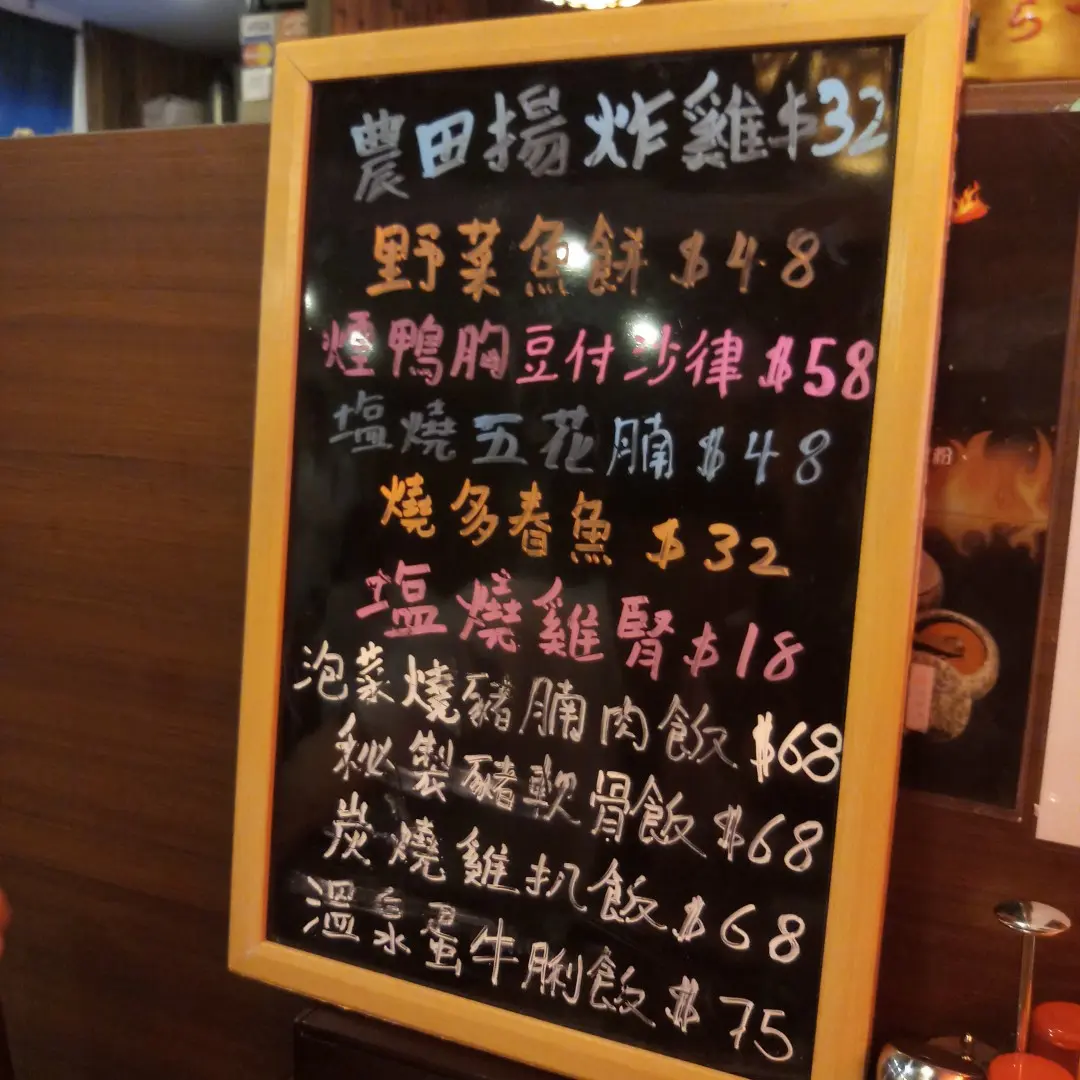 農田揚炸雞$32
野菜魚餅$48
煙鴨胸豆付沙律$58
塩燒五花腩$48
燒多春魚$32
塩燒雞腎$18
泡菜燒豬腩肉飯$68
秘製豬軟骨飯$68
炭燒雞扒飯$68
溫泉蛋牛脷飯$75